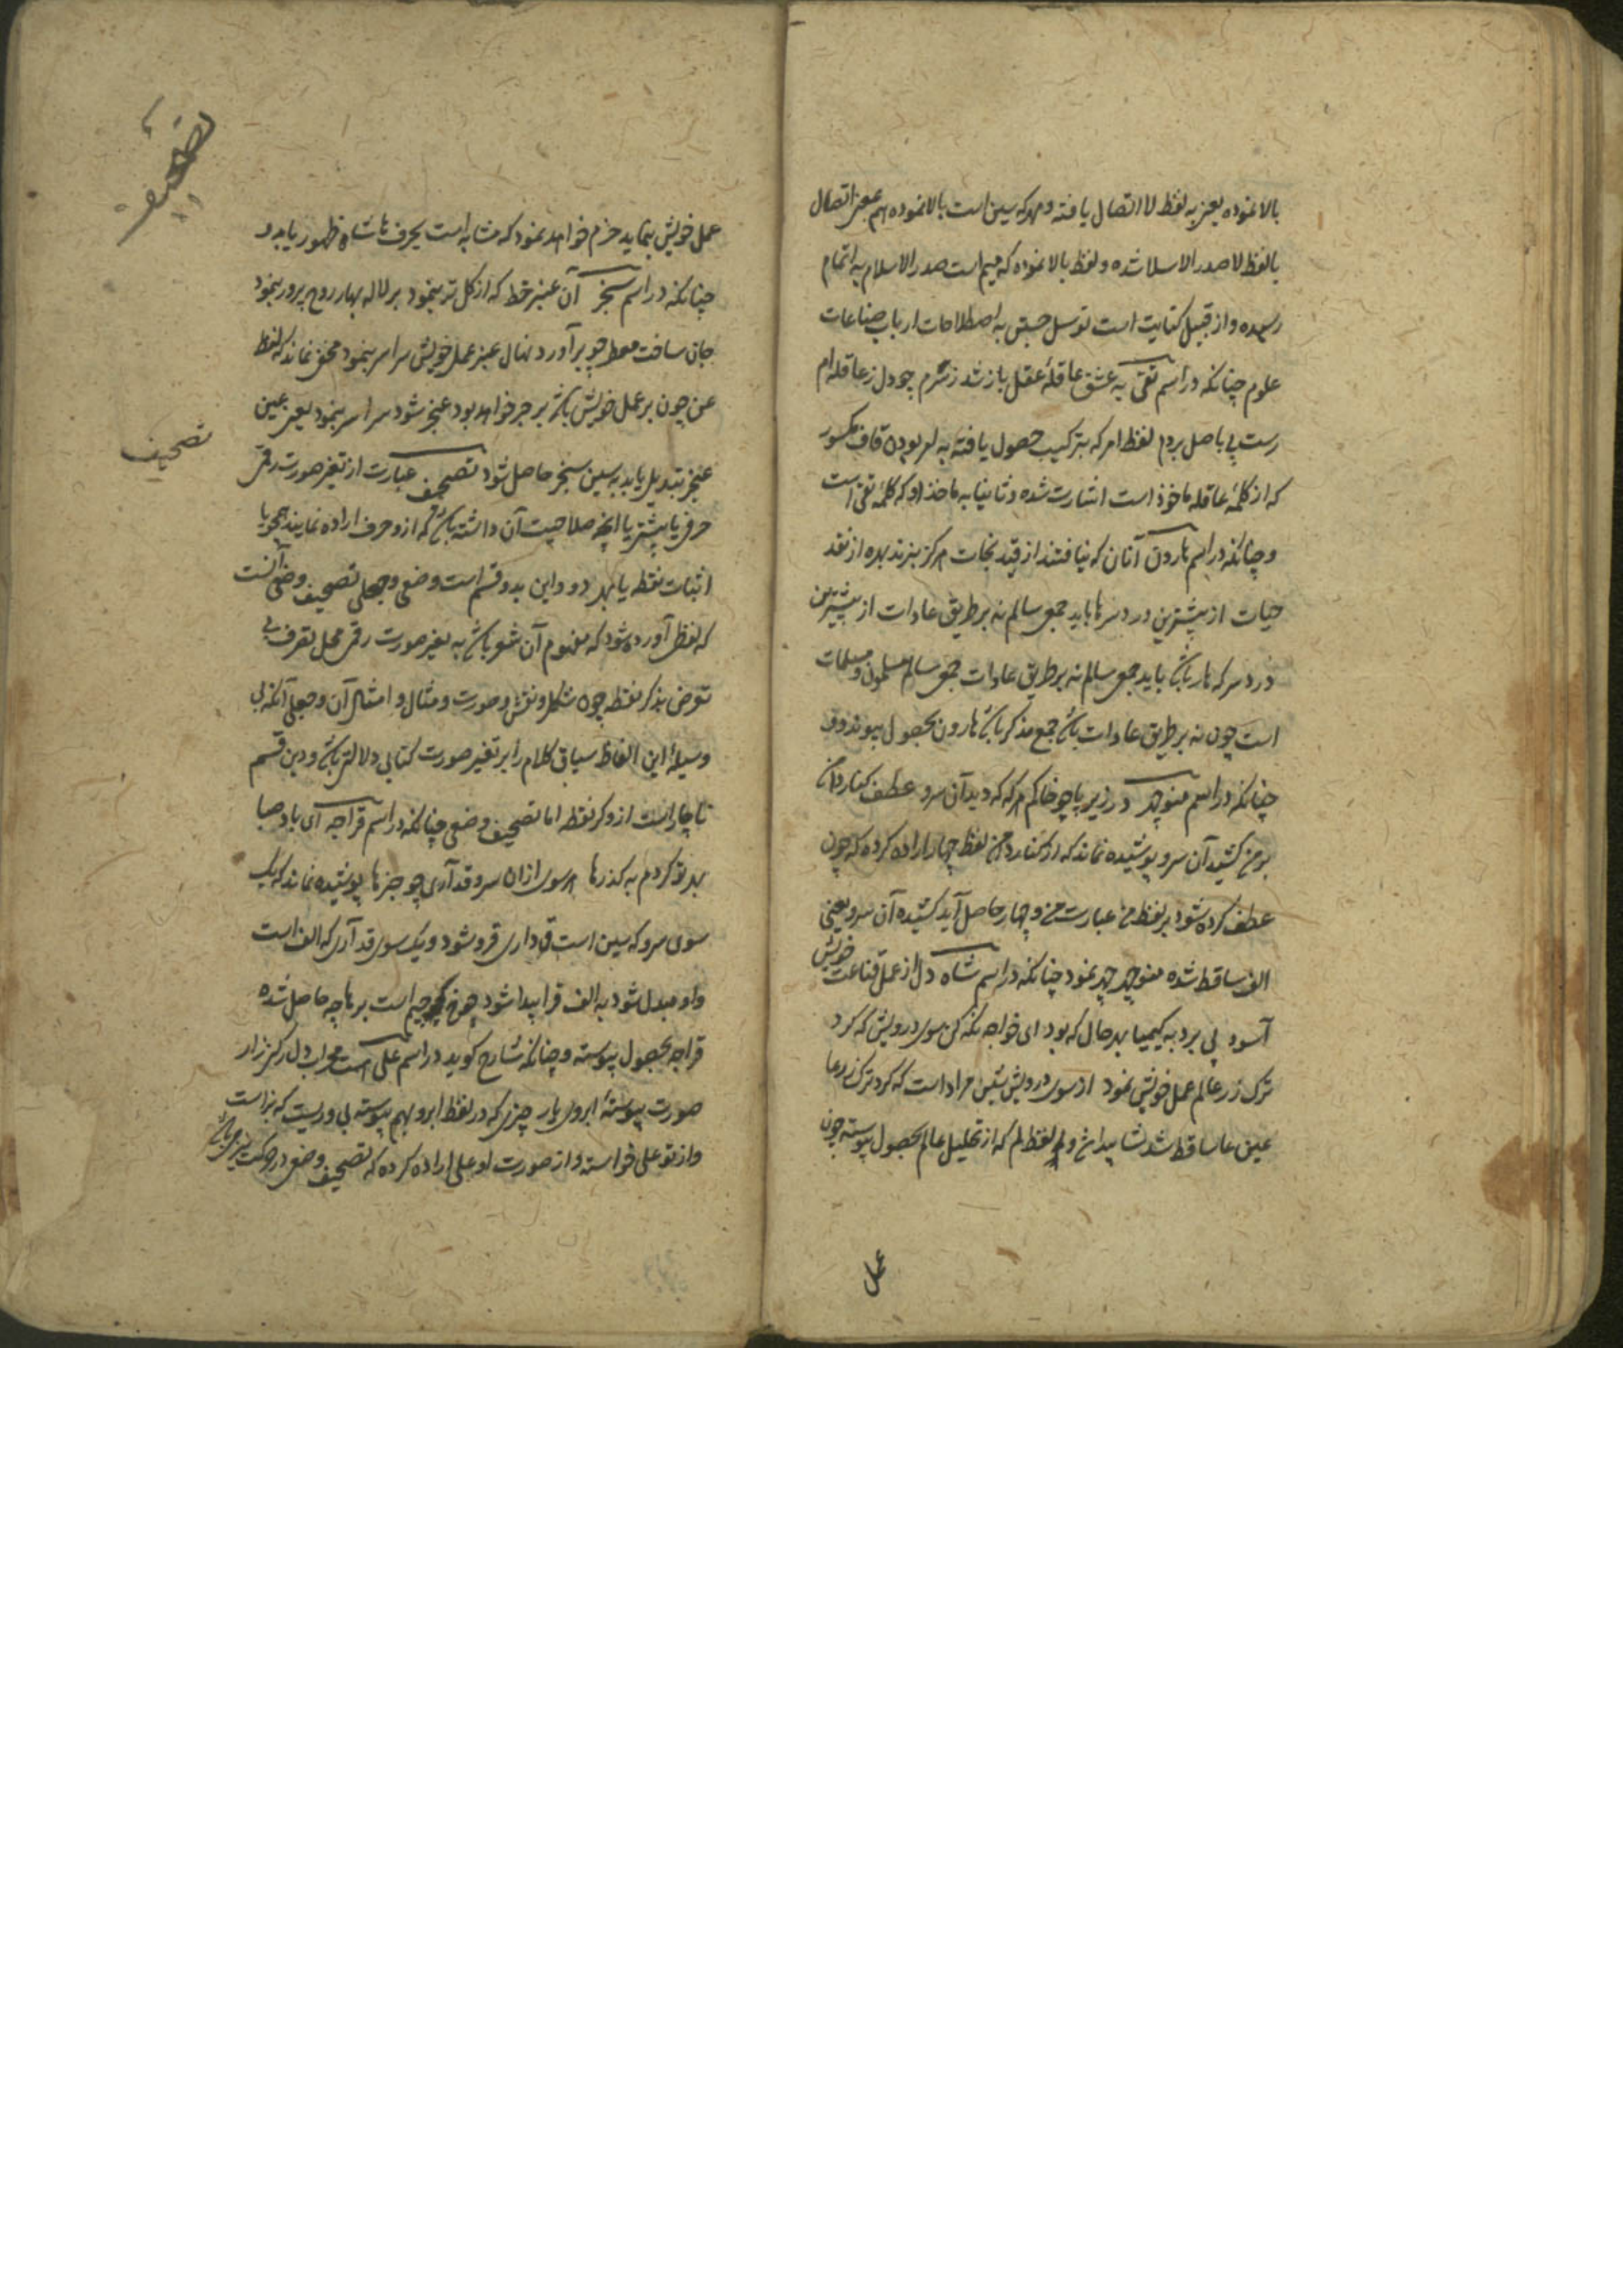 بالا نموده یعنی به لفظ لا اتصال یافته و مهر که سین است بالا نموده هم بمعنی اتصال
بالفظ لا صدر الاسلا شده و لفظ بالا نموده که میم است صدر الاسلام به اتمام
رسیده و از قبیل کنایت است توسل جستن به اصطلاحات ارباب صناعات
علوم چنانکه در اسم تقی به عشق عاقلهٔ عقل باز شد زسرم چو دل ز عاقله ام
رست پی باصل بردم لفظ ام که بترکیب حصول یافته به قاف مکسور
که از کلمهٔ عاقله ماخوذ است اشارت شده و ثانیا به ماخذ او که کلمهٔ تقی است
و چنانکه در اسم هارون آنان که نیافتند از قید نجات هرکز نبرند بهره از نقد
حیات از بیشترین درد سرها باید جمع سالم نه بر طریق عادات از بیشترین
درد سر که هار باشد باید جمع سالم نه بر طریق عادات جمع سالم مسلمون و مسلمات
است چون نه بر طریق عادات باشد جمع مذکر باشد هارون بحصول پیوندد و
چنانکه در اسم منوچهر در زیر پا چو خاکم هر که که دید آن سرو عطف کنار دامن
بر من کشید آن سرو پوشیده نماند که از کنار دامن لفظ چهار اراده کرده که چون
عطف کرده شود بر لفظ من عبارت من و چهار حاصل آید کشیده آن سرو یعنی
الف ساقط شده منوچهر چهر نمود چنانکه در اسم شاه دل از عمل قناعت خویش
آسود پی برد به کیمیا بهر حال که بود ای خواجه نکه کن سوی درویش که کرد
ترک زر عالم عمل خویش نمود از سوی درویش شین مراد است که کرد ترک زر عا
عین عا ساقط شد شا پیدا شد و لم لفظ لم که از تحلیل عالم بحصول پیوسته چون
عمل
عمل خویش بنماید جزم خواهد نمود که مشابه است بحرف ها شاه ظهور یابد و
چنانکه در اسم سنجر آن عنبر خط که از کل تر بنمود بر لاله بهار روح پرور بنمود
جان سافت معطر چو برآورد نهال عنبر عمل خویش سراسر بنمود مخفی نماند که لفظ
عن چون بر عمل خویش باشد بر جر خواهد بود عنجر شود سراسر بنمود یعنی عین
عنجر تبدیل یابد به سین سنجر حاصل شود تصحیف عبارت از تغیر صورت رقمی
حرفی یا بیشتر یا آنچه صلاحیت آن داشته باشد که ازو حرف اراده نمایند بمحو یا
اثبات نقطه یا بهر دو و این بدو قسم است وضعی و جعلی تصحیف وضعی آنست
که لفظی آورده شود که مفهوم آن مشعر باشد به تغیر صورت رقمی محل تصرف بی
تعرض بذکر نقطه چون شکل و نقش و صورت و مثال و امثال آن و جعلی آنکه بی
وسیلهٔ این الفاظ سیاق کلام را بر تغیر صورت کتابی دلالتی باشد و دین قسم
ناچار است از ذکر نقطه اما تصحیف وضعی چنانکه در اسم قراجه ای باد صبا
بهر تو کردم به کذرها هر سوی ازان سرو قد آری چو خبرها پوشیده نماند که یک
سوی سرو که سین است ق داری قرو شود و یک سوی قد آری که الف است
واو مبدل شود به الف قرا پیدا شود چون جیم است بر ها چه حاصل شده
قراجه بحصول پیوسته و چنانکه شارح کوید در اسم علی است محراب دل ارکنی زار
صورت پیوستهٔ ابروی یار چیزی که در لفظ ابرو بهم پیوسته بی و ریست که بر است
و از تو علی خواسته و از صورت او علی اراده کرده که تصحیف وضعی
تصحیف